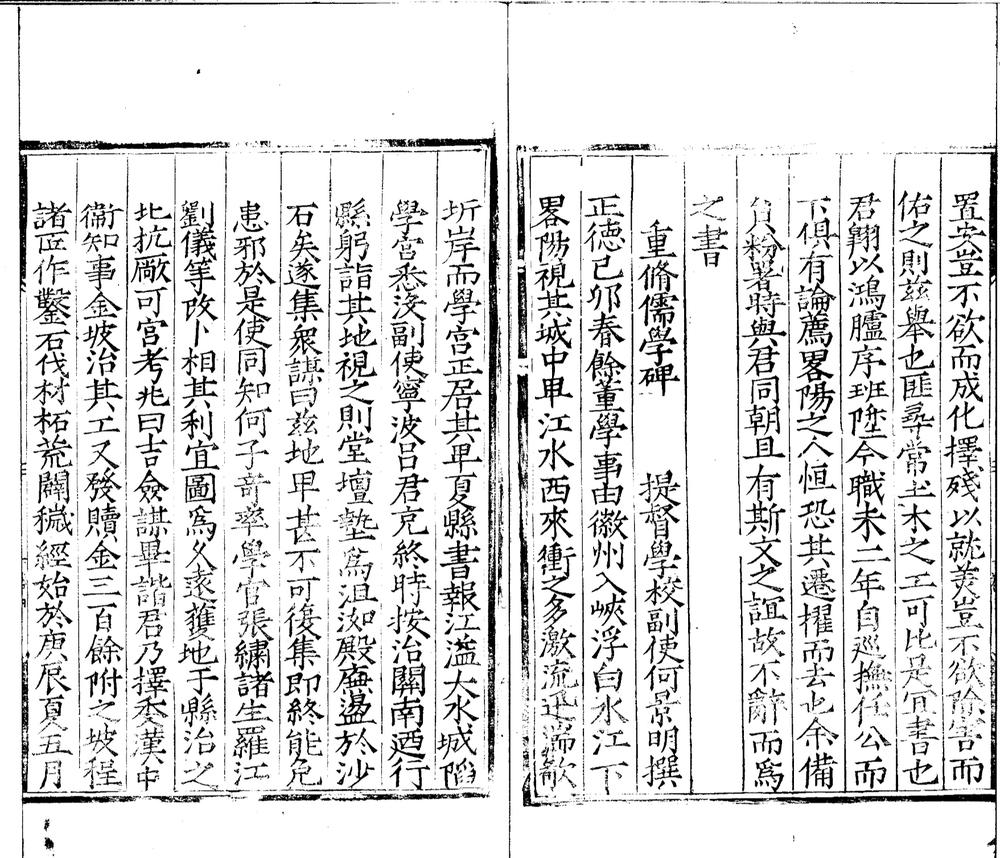 置安豈不欲而成化擇殘以就美豈不欲除害而
佑之則茲舉也匪尋常土木之工可比是宜書也
君翺以鴻臚序班陞今職未二年自巡撫任公而
下俱有論薦畧陽之人恒恐其遷擢而去也余備
負粉署時與君同朝且有斯文之誼故不辭而爲
之書
重脩儒學碑 提督學校副使何景明撰
正德己卯春餘董學事由徽州入峽浮白水江下
畧陽視其城中卑江水西來衝之多激流迅湍歕
圻岸而學宮正居其卑夏縣書報江溢大水城陷
學宮悉沒副使寧波呂君克終時按治關南迺行
縣躬詣其地視之則堂壇墊爲沮洳殿廡盪於沙
石矣遂集衆謀曰茲地卑甚不可復集即終能免
患邪於是使同知何子竒率學官張繡諸生羅江
劉儀等攺卜相其利宜圖爲久遠獲地于縣治之
北抗厰可宮考兆曰吉僉謀畢諧君乃擇委漢中
衞知事金坡治其工又發贖金三百餘附之坡程
諸匠作鑿石伐材柘荒闢穢經始於庚辰夏五月